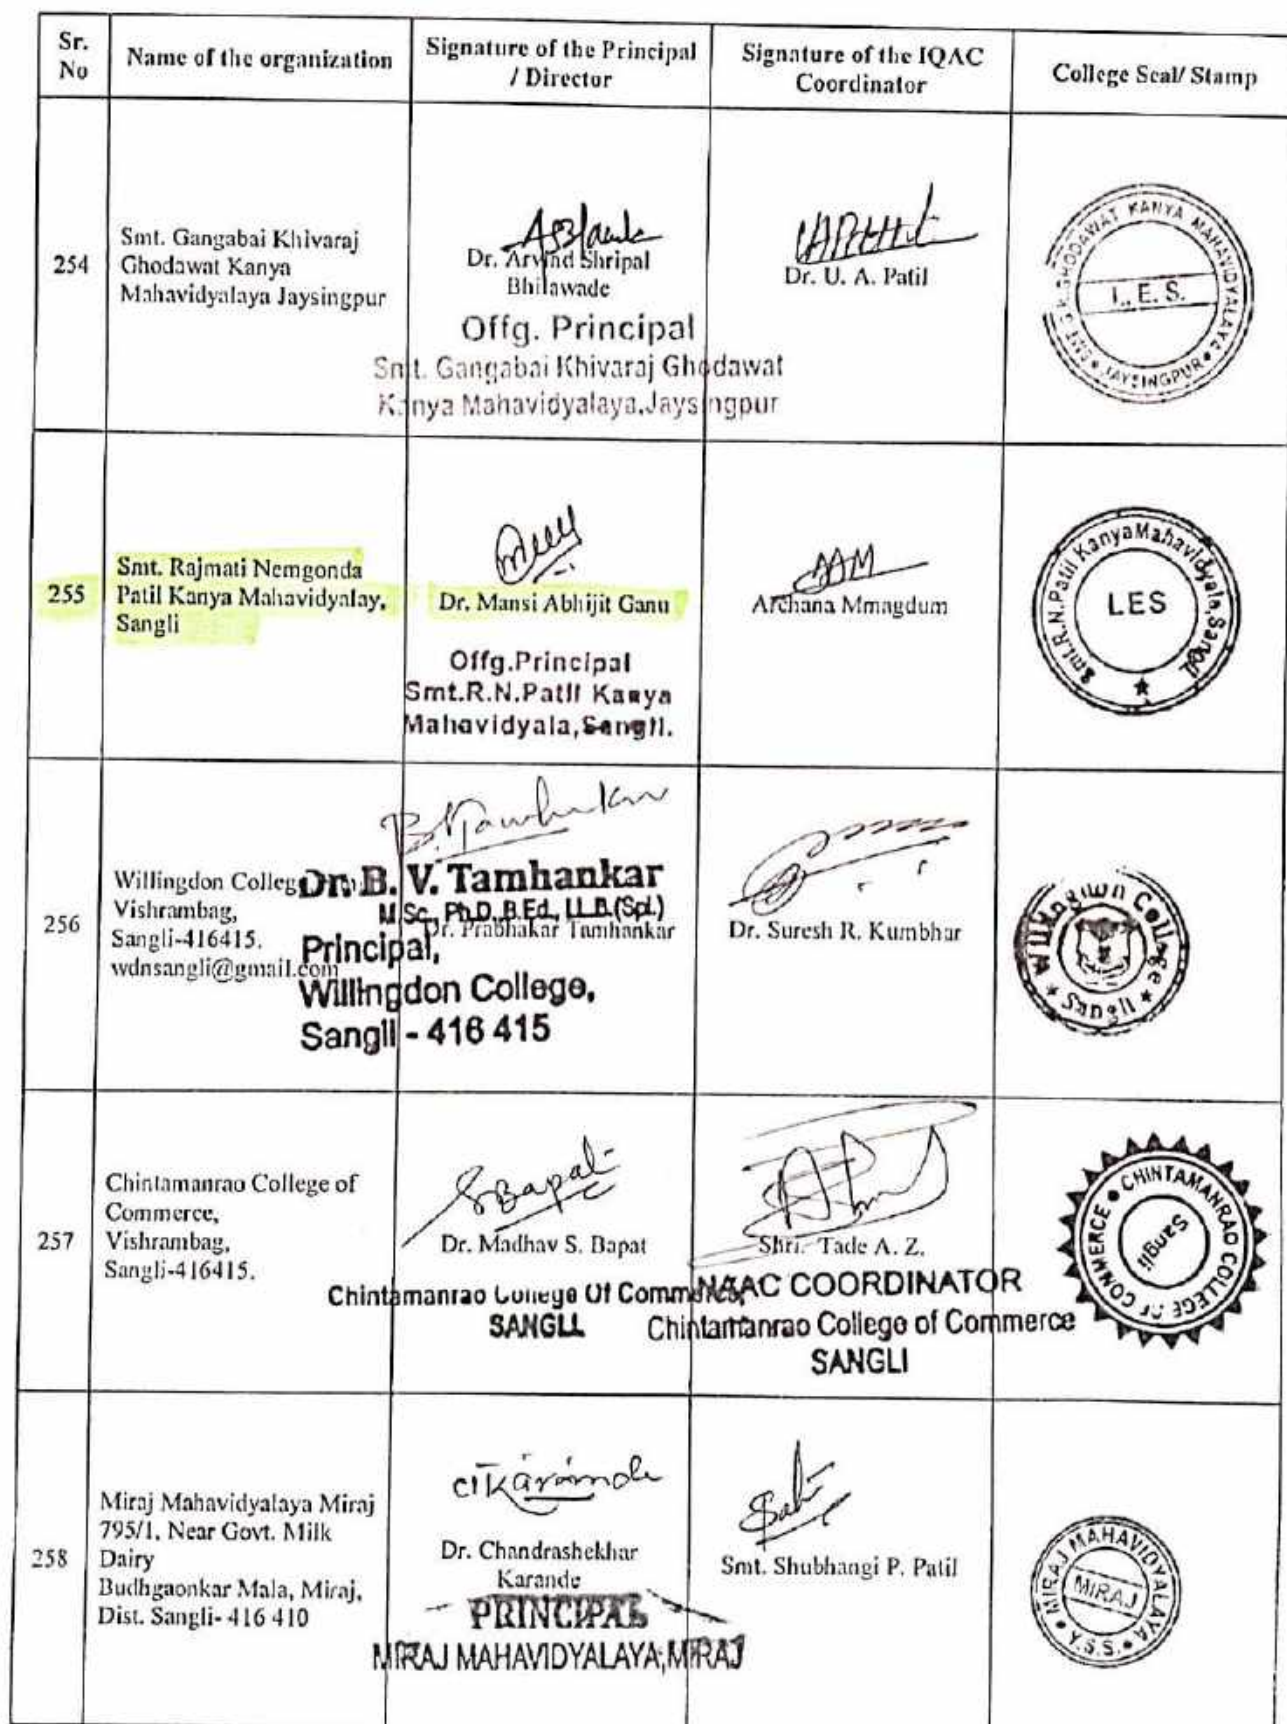 Sr. No
Name of the organization
Signature of the Principal / Director
Signature of the IQAC Coordinator
College Seal/ Stamp
254
Smt. Gangabai Khivaraj
Ghodawat Kanya
Mahavidyalaya Jaysingpur
Dr. Arvind Shripal
Bhilawade
Offg. Principal
Smt. Gangabai Khivaraj Ghodawat
Kanya Mahavidyalaya,Jaysingpur
Dr. U. A. Patil
SMT. G.K.GHODAWAT KANYA MAHAVIDYALAYA
JAYSINGPUR
L. E. S.
255
Smt. Rajmati Nemgonda
Patil Kanya Mahavidyalay,
Sangli
Dr. Mansi Abhijit Ganu
Offg.Principal
Smt.R.N.Patil Kanya
Mahavidyala,Sangli.
Archana Mmagdum
Smt.R.N.Patil KanyaMahavidyala,Sangli
LES
256
Willingdon College
Vishrambag,
Sangli-416415.
wdnsangli@gmail.com
B.V.Tamhankar
Dr. B. V. Tamhankar
M.Sc., Ph.D., B.Ed., LL.B.(Spl.)
Dr. Prabhakar Tamhankar
Principal,
Willingdon College,
Sangli - 416 415
Dr. Suresh R. Kumbhar
Willingdon College
Sangli
257
Chintamanrao College of
Commerce,
Vishrambag,
Sangli-416415.
SBapat
Dr. Madhav S. Bapat
Chintamanrao College Of Commerce,
SANGLI.
Shri. Tade A. Z.
NAAC COORDINATOR
Chintamanrao College of Commerce
SANGLI
CHINTAMANRAO COLLEGE OF COMMERCE
Sangli
258
Miraj Mahavidyalaya Miraj
795/1, Near Govt. Milk
Dairy
Budhgaonkar Mala, Miraj,
Dist. Sangli- 416 410
Dr. Chandrashekhar
Karande
PRINCIPAL
MIRAJ MAHAVIDYALAYA, MIRAJ
Smt. Shubhangi P. Patil
MIRAJ MAHAVIDYALAYA
Y.S.S.
MIRAJ